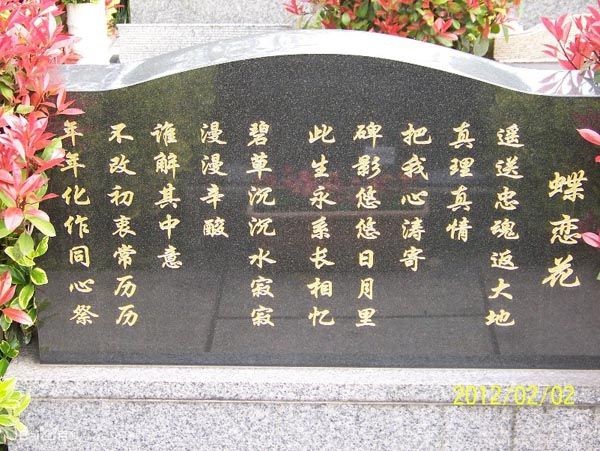 蝶恋花
遥送忠魂返大地
真理真情
把我心涛寄
碑影悠悠日月里
此生永系长相忆
碧草沉沉水寂寂
漫漫辛酸
谁解其中意
不改初衷常历历
年年化作同心祭
2012/02/02